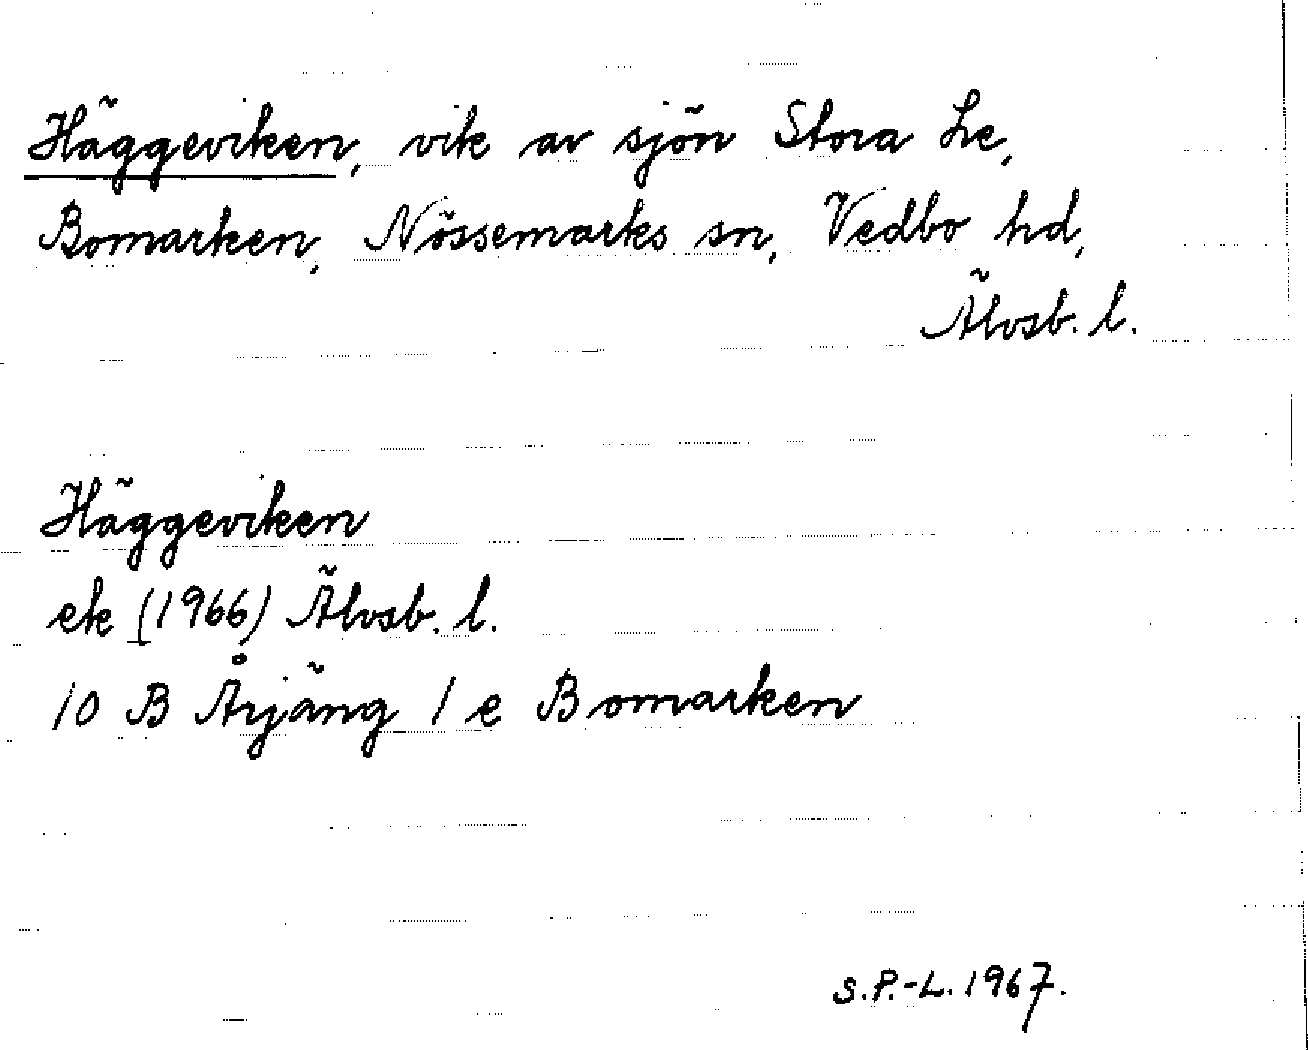 Häggeviken, vik av sjön Stora Le,
Bomarken, Nössemarks sn, Vedbo hd,
Älvsb. l.
Häggeviken
ek (1966) Älvsb. l.
10 B Årjäng 1 e Bomarken
S.P.-L. 1967.